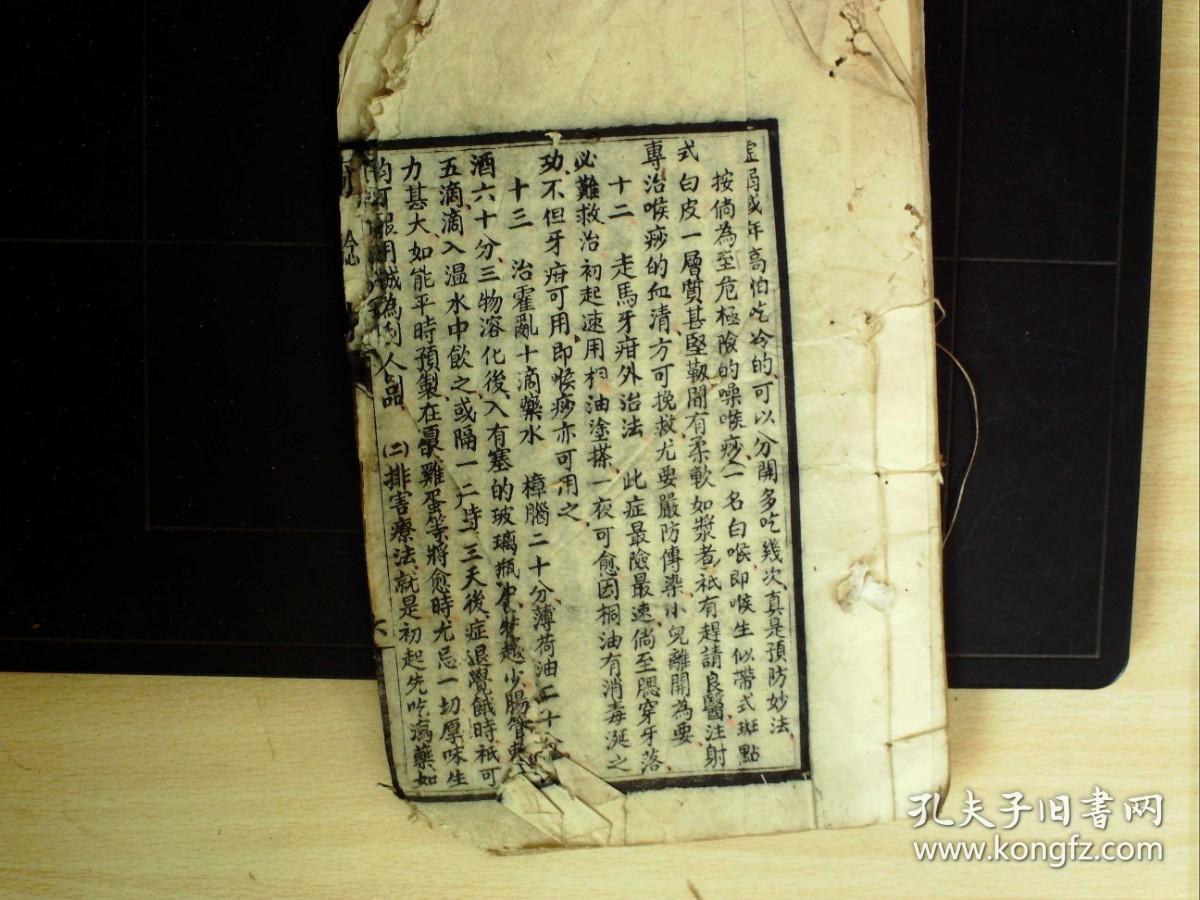 虛弱或年高怕吃冷的可以分開多吃幾次、真是預防妙法、
按倘為至危極險的喉痧、一名白喉即喉生似帶式斑點
式白皮一層質甚堅靱間有柔軟如漿者、祇有趕請良醫注射
專治喉痧的血清、方可挽救尤要嚴防傳染小兒離開為要、
十二 走馬牙疳外治法 此症最險最速、倘至腮穿牙落、
必難救治、初起速用桐油塗搽一夜可愈因桐油有消毒涎之
功、不但牙疳可用即喉痧亦可用之、
十三 治霍亂十滴藥水 樟腦二十分、薄荷油二十分
酒六十分、三物溶化後、入有塞的玻璃瓶 少腸
五滴、滴入温水中飲之、或隔一二時、三天後、症退覺餓時祇可
力甚大、如能平時預製在 雞蛋等將愈時尤忌一切厚味生
均可服用誠為利人品 (二)排害療法就是初起先吃瀉藥如
六
孔夫子旧书网
www.kongfz.com